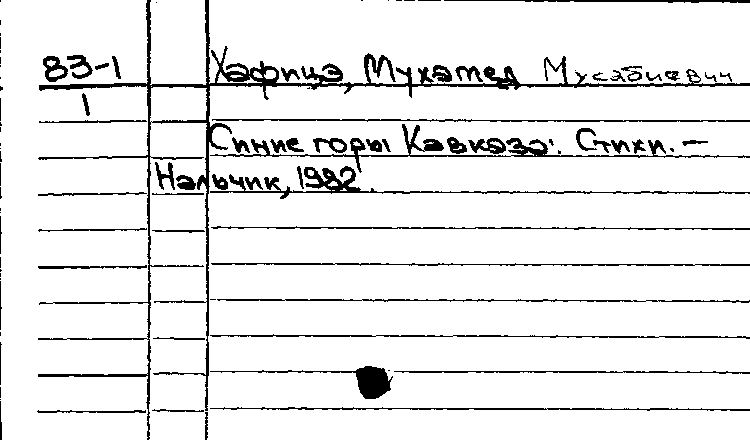 83-1 Хафицэ, Мухамед Мусабиевич
1
Синие горы Кавказа: Стихи. –
Нальчик, 1982.